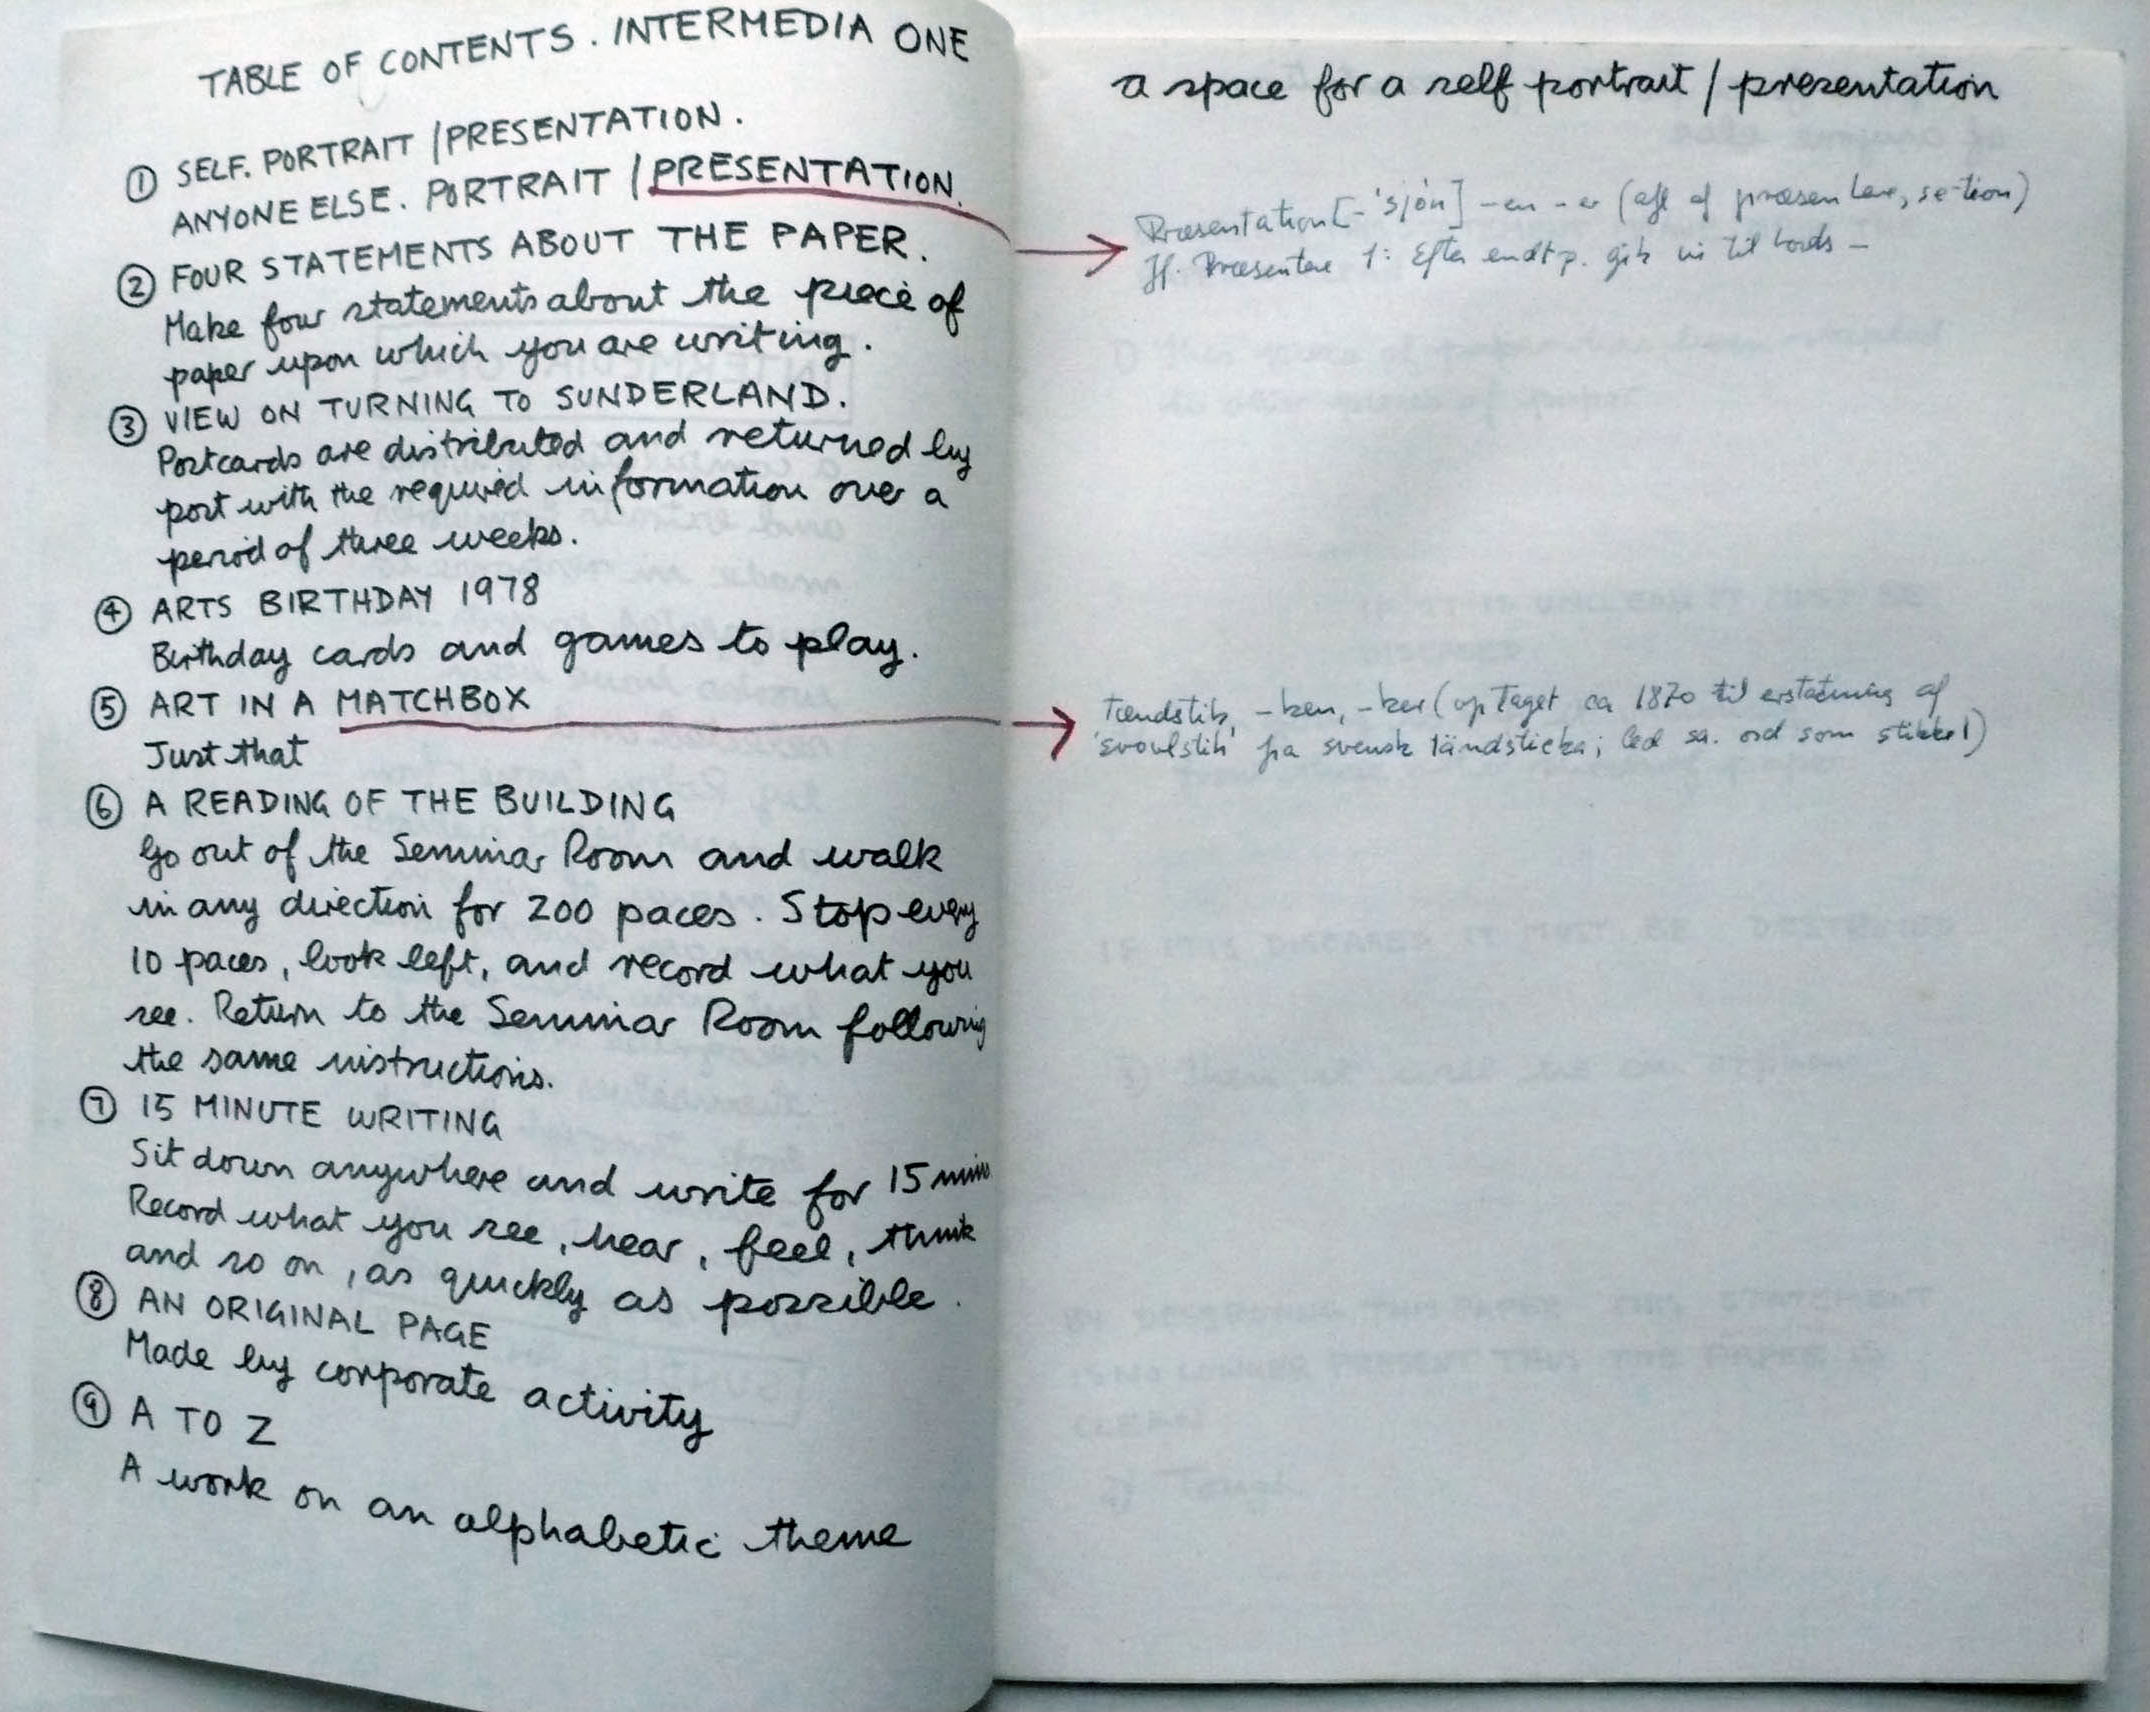 TABLE OF CONTENTS. INTERMEDIA ONE
① SELF. PORTRAIT / PRESENTATION.
ANYONE ELSE. PORTRAIT / PRESENTATION.
② FOUR STATEMENTS ABOUT THE PAPER.
Make four statements about the piece of
paper upon which you are writing.
③ VIEW ON TURNING TO SUNDERLAND.
Postcards are distributed and returned by
post with the required information over a
period of three weeks.
④ ARTS BIRTHDAY 1978
Birthday cards and games to play.
⑤ ART IN A MATCHBOX
Just that
⑥ A READING OF THE BUILDING
Go out of the Seminar Room and walk
in any direction for 200 paces. Stop every
10 paces, look left, and record what you
see. Return to the Seminar Room following
the same instructions.
⑦ 15 MINUTE WRITING
Sit down anywhere and write for 15 mins
Record what you see, hear, feel, think
and so on, as quickly as possible.
⑧ AN ORIGINAL PAGE
Made by corporate activity
⑨ A TO Z
A work on an alphabetic theme
a space for a self portrait / presentation
Præsentation [-'sjón] -en -er (afl af præsentere, se -tion)
Jf. Præsentere 1: Efter endt p. gik vi til bords –
Tændstik, -ken, -ker (optaget ca 1870 til erstatning af
'svovlstik' fra svensk tändsticka; led sa. ord som stikkel)